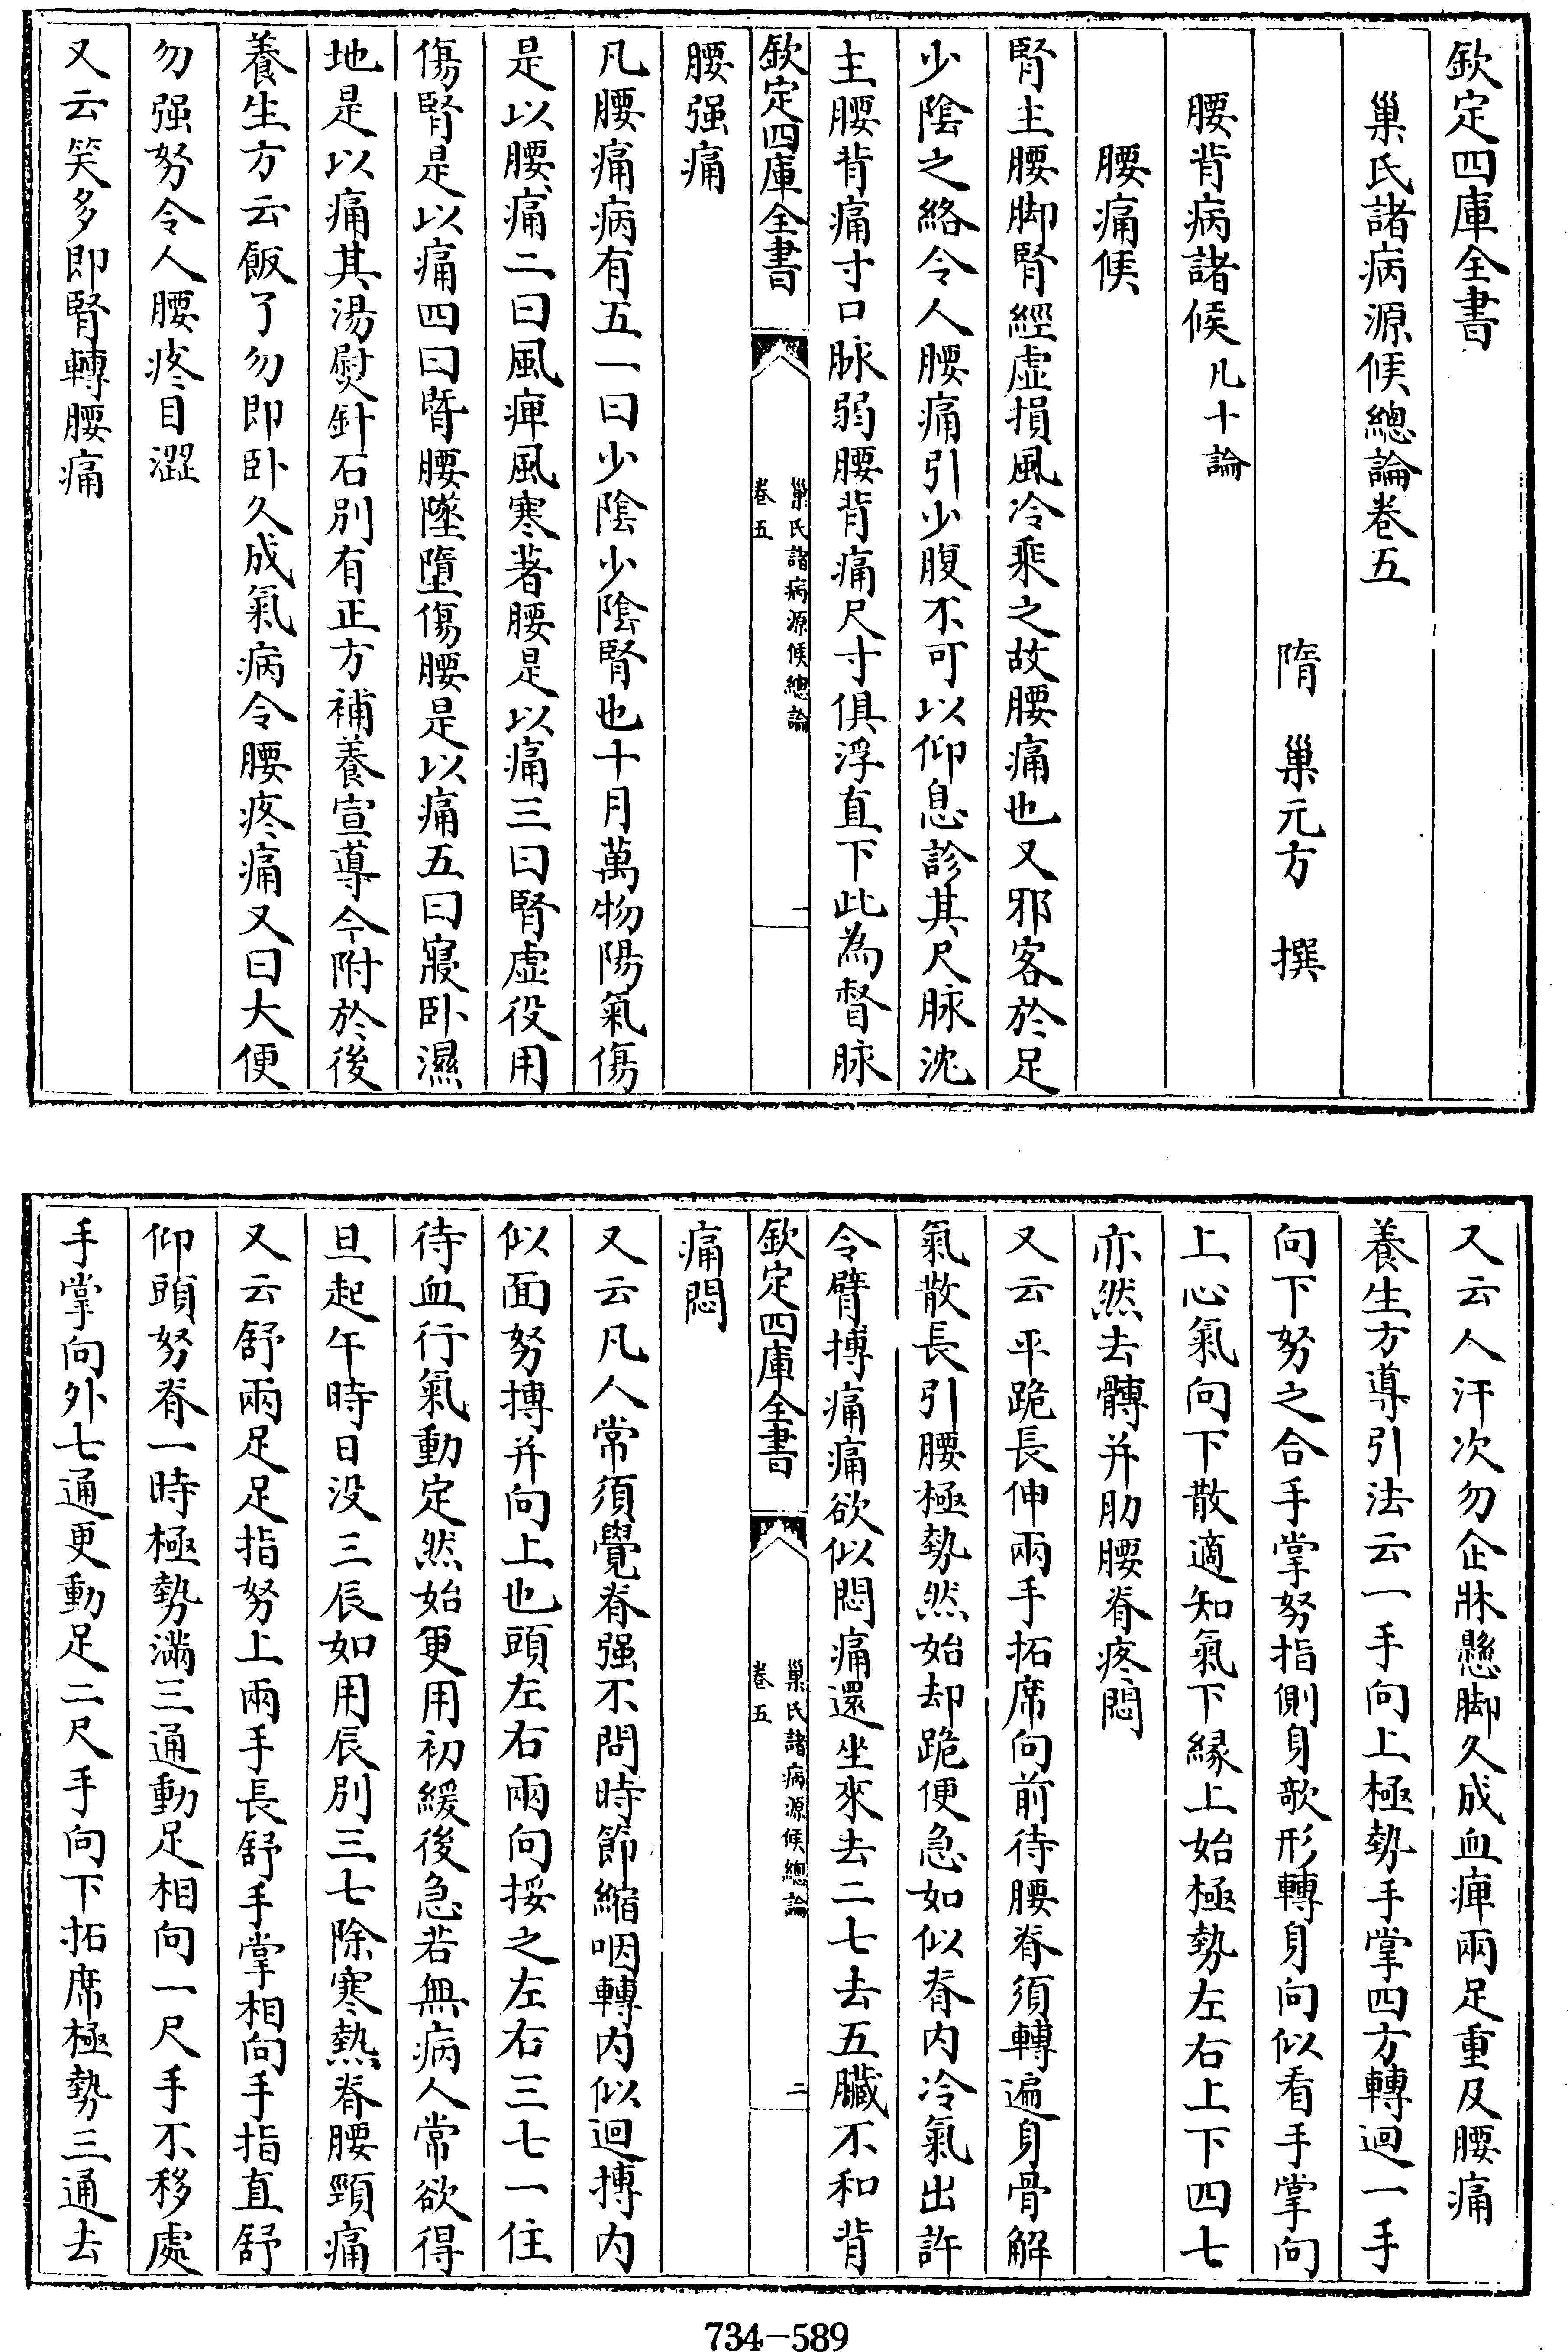 欽定四庫全書
巢氏諸病源候總論卷五
隋　巢元方　撰
腰背病諸候凡十論
腰痛候
腎主腰脚腎經虚損風冷乘之故腰痛也又邪客於足
少陰之絡令人腰痛引少腹不可以仰息診其尺脉沈
主腰背痛寸口脉弱腰背痛尺寸俱浮直下此為督脉
欽定四庫全書
巢氏諸病源候總論
卷五
一
腰强痛
凡腰痛病有五一曰少陰少陰腎也十月萬物陽氣傷
是以腰痛二曰風痺風寒著腰是以痛三曰腎虚役用
傷腎是以痛四曰䐴腰墜墮傷腰是以痛五曰寢卧濕
地是以痛其湯熨針石别有正方補養宣導今附於後
養生方云飯了勿即卧久成氣病令腰疼痛又曰大便
勿强努令人腰疼目澀
又云笑多即腎轉腰痛
又云人汗次勿企牀懸脚久成血痺兩足重及腰痛
養生方導引法云一手向上極勢手掌四方轉迴一手
向下努之合手掌努指側身欹形轉身向似看手掌向
上心氣向下散適知氣下緣上始極勢左右上下四七
亦然去髆并肋腰脊疼悶
又云平跪長伸兩手拓席向前待腰脊須轉遍身骨解
氣散長引腰極勢然始却跪便急如似脊内冷氣出許
令臂搏痛痛欲似悶痛還坐來去二七去五臟不和背
欽定四庫全書
巢氏諸病源候總論
卷五
二
痛悶
又云凡人常須覺脊强不問時節縮咽轉内似迴搏内
似面努搏并向上也頭左右兩向挼之左右三七一住
待血行氣動定然始更用初緩後急若無病人常欲得
旦起午時日没三辰如用辰别三七除寒熱脊腰頸痛
又云舒兩足足指努上兩手長舒手掌相向手指直舒
仰頭努脊一時極勢滿三通動足相向一尺手不移處
手掌向外七通更動足二尺手向下拓席極勢三通去
734-589